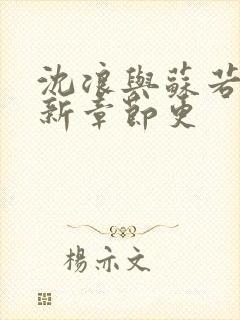 沈浪與蘇若
新章節更
楊亦文